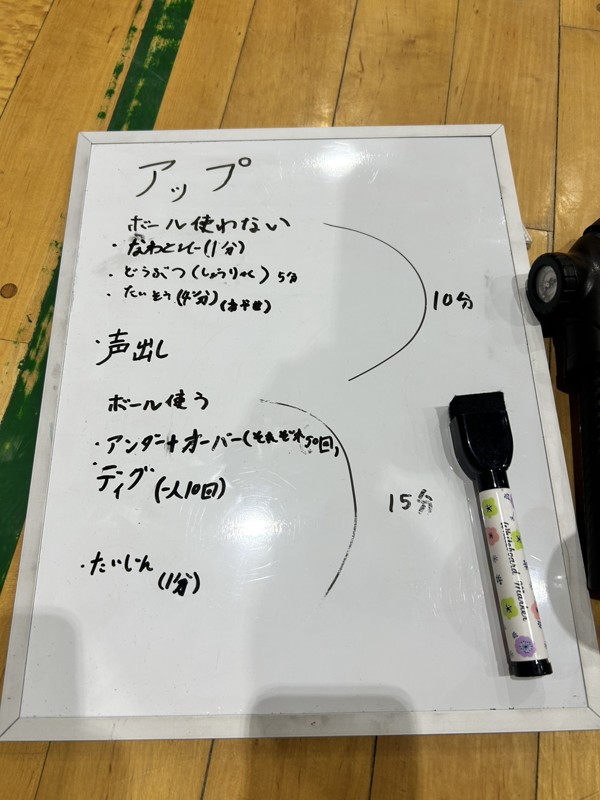 アップ
ボール使わない
・なわとび(1分)
・どうぶつ(しょうりゃく) 5分
・たいそう(4分)
10分
・声出し
ボール使う
・アンダー+オーバー(それぞれ50回)
・ディグ(一人10回)
15分
・たいじん(1分)
Whiteboard Marker